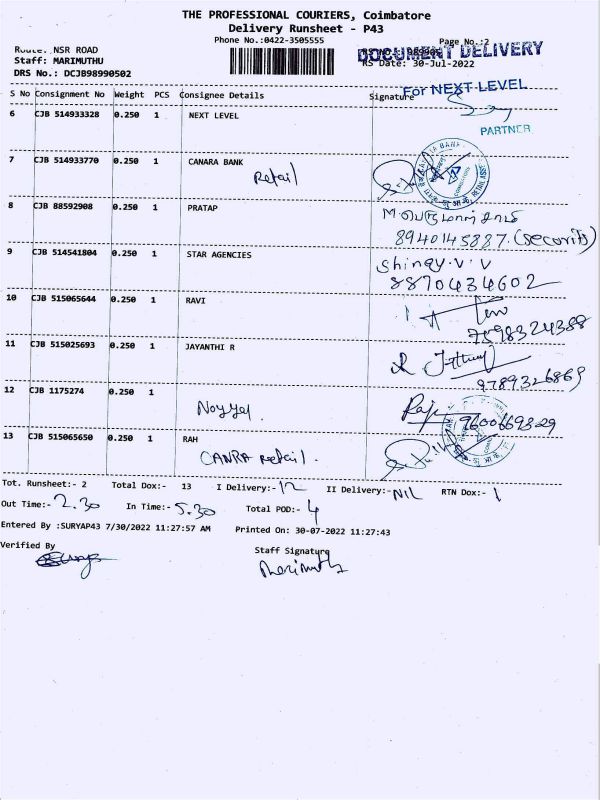 THE PROFESSIONAL COURIERS, Coimbatore
Delivery Runsheet - P43
Phone No.:0422-3505555
Page No.:2
Route: NSR ROAD
DOCUMENT DELIVERY
Staff: MARIMUTHU
RS Date: 30-Jul-2022
DRS No.: DCJB98990502
S No Consignment No Weight PCS Consignee Details Signature
For NEXT LEVEL
6 CJB 514933328 0.250 1 NEXT LEVEL
PARTNER
7 CJB 514933770 0.250 1 CANARA BANK
Retail
8 CJB 88592908 0.250 1 PRATAP
8940145887. (Security)
9 CJB 514541804 0.250 1 STAR AGENCIES
Shingy. V. V
8870434602
10 CJB 515065644 0.250 1 RAVI
7598324388
11 CJB 515025693 0.250 1 JAYANTHI R
9789326869
12 CJB 1175274 0.250 1
Noyyel.
Raj
9600669329
13 CJB 515065650 0.250 1 RAH
CANRA Retail.
Tot. Runsheet:- 2 Total Dox:- 13 I Delivery:- 12 II Delivery:- NIL RTN Dox:- 1
Out Time:- 2.30 In Time:- 5.30 Total POD:- 4
Entered By :SURYAP43 7/30/2022 11:27:57 AM Printed On: 30-07-2022 11:27:43
Verified By
Staff Signature
Marimuth